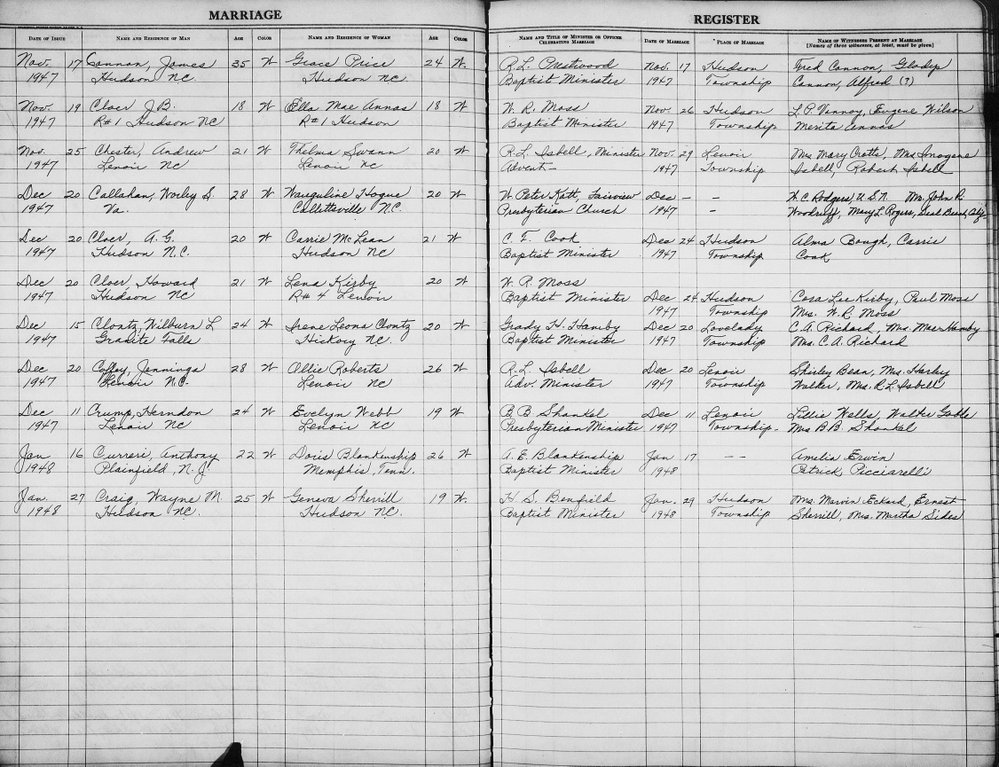 MARRIAGE
REGISTER
DATE OF ISSUE NAME AND RESIDENCE OF MAN AGE COLOR NAME AND RESIDENCE OF WOMAN AGE COLOR NAME AND TITLE OF MINISTER OR OFFICER CELEBRATING MARRIAGE DATE OF MARRIAGE PLACE OF MARRIAGE NAME OF WITNESSES PRESENT AT MARRIAGE
[Names of three witnesses, at least, must be given]
Nov. 17 Cannon, James 35 W Grace Price 24 W. R.L. Prestwood Nov. 17 Hudson Fred Cannon, Gladys
1947 Hudson NC Hudson NC. Baptist Minister 1947 Township Cannon, Alfred (?)
Nov. 19 Cloer J.B. 18 W Ella Mae Annas 18 W W. R. Moss Nov 26 Hudson L.P. Vannoy, Eugene Wilson
1947 R#1 Hudson NC R#1 Hudson Baptist Minister 1947 Township. Merita Annas
Nov. 25 Chester, Andrew 21 W Thelma Swann 20 W R.L. Isbell, Minister Nov. 29 Lenoir Mrs Mary Crotts, Mrs Imogene
1947 Lenoir NC Lenoir NC Advent- 1947 Township Isbell, Robert Isbell
Dec 20 Callahan, Worley S. 28 W Hogue 20 W W Peter Katt, Fairview Dec - - W.C. Rodgers, U.S.N. Mr. John R.
1947 Va. Collettsville N.C. Presbyterian Church 1947 - Woodruff, Mary L Rogers, Seal Beach, Calif
Dec 20 Cloer, A.G. 20 W Carrie McLean 21 W C. F. Cook Dec 24 Hudson Alma Bough, Carrie
1947 Hudson N.C. Hudson NC Baptist Minister 1947 Township Cook
Dec 20 Cloer, Howard 21 W Lena Kirby 20 W W. R. Moss
1947 Hudson NC R#4 Lenoir Baptist Minister Dec 24 Hudson Cora Lee Kirby, Paul Moss
1947 Township Mrs. W.R. Moss
Dec 15 Clontz, Wilburn L 24 W Irene Leona Clontz 20 W Grady H. Hamby Dec 20 Lovelady C.A. Richard, Mrs. Mae Hamby
1947 Granite Falls Hickory NC. Baptist Minister 1947 Township Mrs. C.A. Richard
Dec 20 Coffey, Jennings 28 W Ollie Roberts 26 W R.L. Isbell Dec 20 Lenoir Shirley Bean, Mrs. Harley
1947 Lenoir N.C. Lenoir NC Adv. Minister 1947 Township Walker, Mrs. R.L. Isbell
Dec 11 Crump, Herndon 24 W Evelyn Webb 19 W B B Shankel Dec 11 Lenoir Lillie Wells, Walter Goble
1947 Lenoir NC Lenoir NC Presbyterian Minister 1947 Township. Mrs B.B. Shankel
Jan 16 Curreri, Anthony 22 W Doris Blankenship 26 W A. E. Blankenship Jan 17 - - Amelia Erwin
1948 Plainfield, N.J. Memphis, Tenn. Baptist Minister 1948 Patrick Picciarelli
Jan. 27 Craig, Wayne M. 25 W Geneva Sherrill 19 W. H. S. Benfield Jan. 29 Hudson Mrs. Marvin Eckard, Ernest
1948 Hudson NC. Hudson N.C. Baptist Minister 1948 Township Sherrill, Mrs. Martha Sides